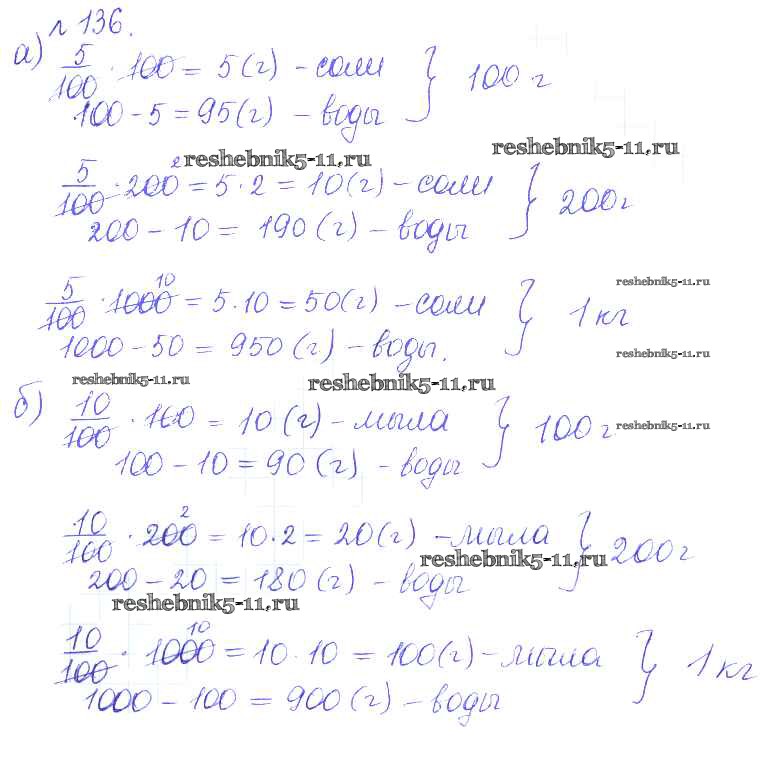 № 136.
а) 5/100 · 100 = 5 (г) – соли } 100 г
100 – 5 = 95 (г) – воды
reshebnik5-11.ru reshebnik5-11.ru
5/100 · 200 2 = 5 · 2 = 10 (г) – соли } 200 г
200 – 10 = 190 (г) – воды
reshebnik5-11.ru
5/100 · 1000 10 = 5 · 10 = 50 (г) – соли } 1 кг
1000 – 50 = 950 (г) – воды.
reshebnik5-11.ru
reshebnik5-11.ru reshebnik5-11.ru
б) 10/100 · 100 = 10 (г) – мыла } 100 г
reshebnik5-11.ru
100 – 10 = 90 (г) – воды
10/100 · 200 2 = 10 · 2 = 20 (г) – мыла } 200 г
reshebnik5-11.ru
200 – 20 = 180 (г) – воды
reshebnik5-11.ru
10/100 · 1000 10 = 10 · 10 = 100 (г) – мыла } 1 кг
1000 – 100 = 900 (г) – воды